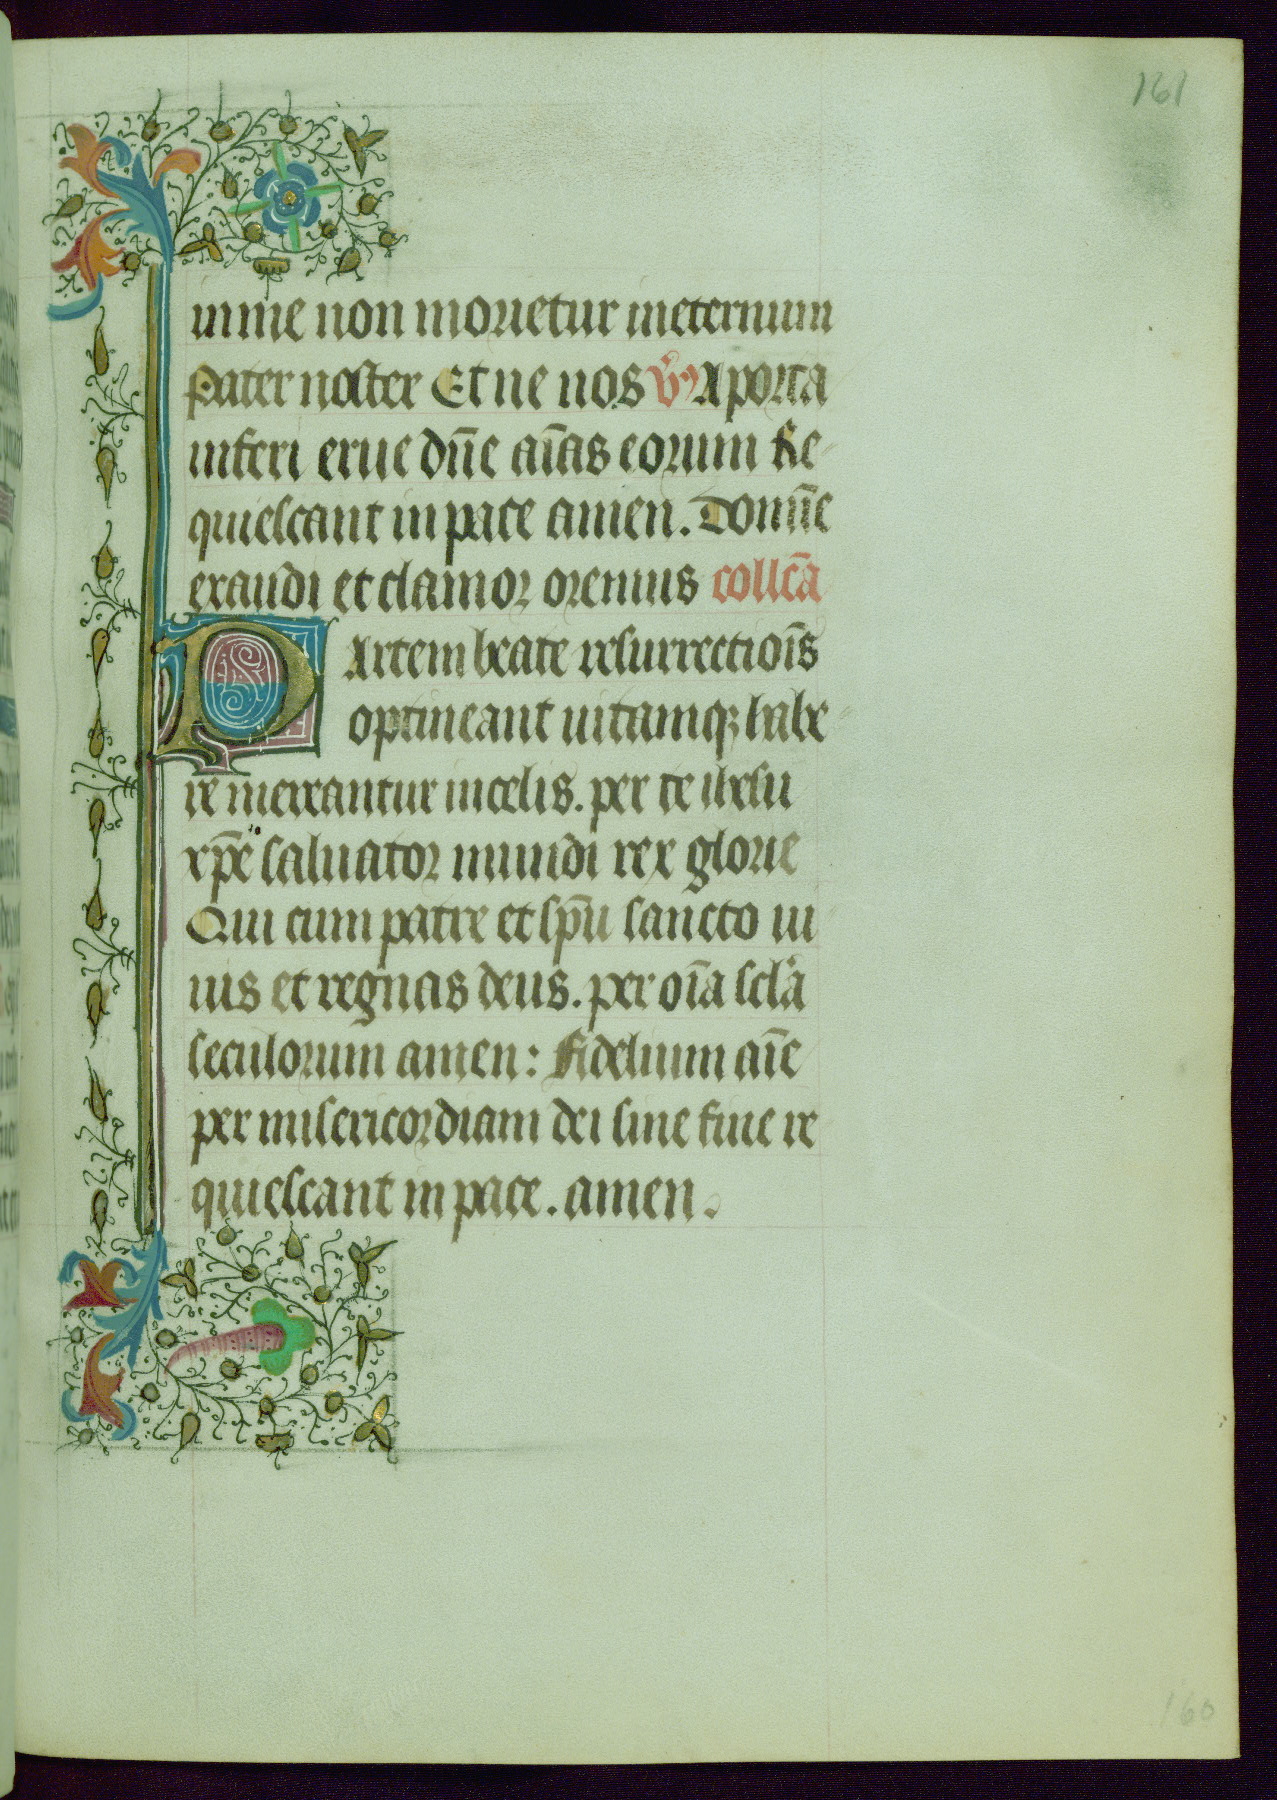 161
in me non mouetur in eternum
Pater noster Et ne nos v̄ A porta
inferi erue dn̄e aīas eorum Re-
quiescant in pace amen. Domīne
exaudi et clamor oremus collcā
PArtem beate resurrectiōis
optineant uitamqꝫ habe-
re mereantur in celis. per te ihesu
xp̄e saluator mundi rex glorie
Qui cum patre et sp̄u sancto ui
uis et regnas deus. per oīa scl̄a
seculorum amen: Fidelium aīe
per misericordiam dei sine fine re
quiescant in pace. amen.
160